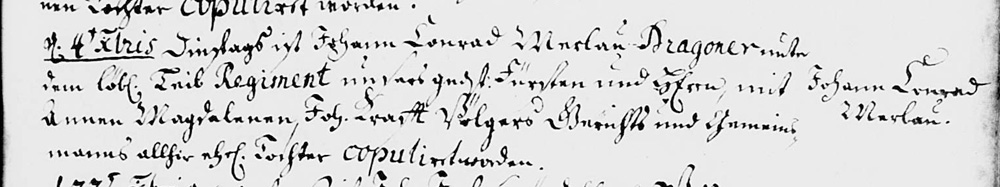 nen Tochter copuliret worden.
d. 4t Xbris Dinstags ist Johann Conrad Merlau Dragoner unte
dem löbl. Leib Regiment unsers gndst. Fürsten und Hrrn, mit
Johann Conrad
Merlau.
Annen Magdalenen, Joh. Krafft Völgers Gerichts und Gemeins
manns allhir ehel. Tochter copuliret worden.